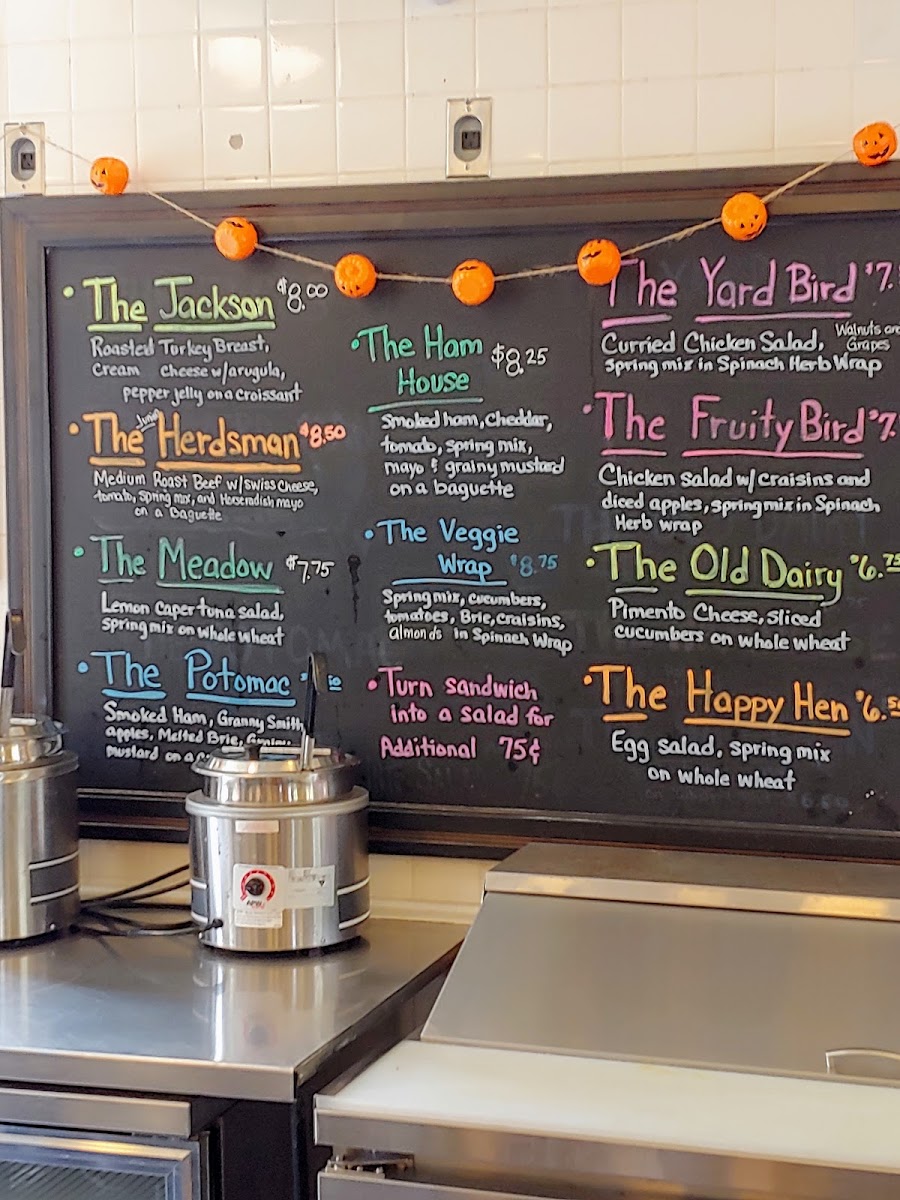 • The Jackson $8.00
Roasted Turkey Breast,
Cream cheese w/arugula,
pepper jelly on a croissant
• The Junior Herdsman $8.50
Medium Roast Beef w/Swiss Cheese,
tomato, Spring mix, and Horseradish mayo
on a Baguette
• The Meadow $7.75
Lemon Caper tuna salad,
spring mix on whole wheat
• The Potomac
Smoked Ham, Granny Smith
apples, Melted Brie,
mustard on a
• The Ham $8.25
House
Smoked ham, Cheddar,
tomato, spring mix,
mayo & grainy mustard
on a baguette
• The Veggie
Wrap $8.75
Spring mix, cucumbers,
tomatoes, Brie, craisins,
almonds in Spinach Wrap
• Turn sandwich
into a salad for
Additional 75¢
The Yard Bird $7.
Curried Chicken Salad, Walnuts and
Grapes
spring mix in Spinach Herb Wrap
• The Fruity Bird $7.
Chicken salad w/ craisins and
diced apples, spring mix in Spinach
Herb wrap
• The Old Dairy $6.75
Pimento Cheese, sliced
cucumbers on whole wheat
• The Happy Hen $6.50
Egg salad, spring mix
on whole wheat